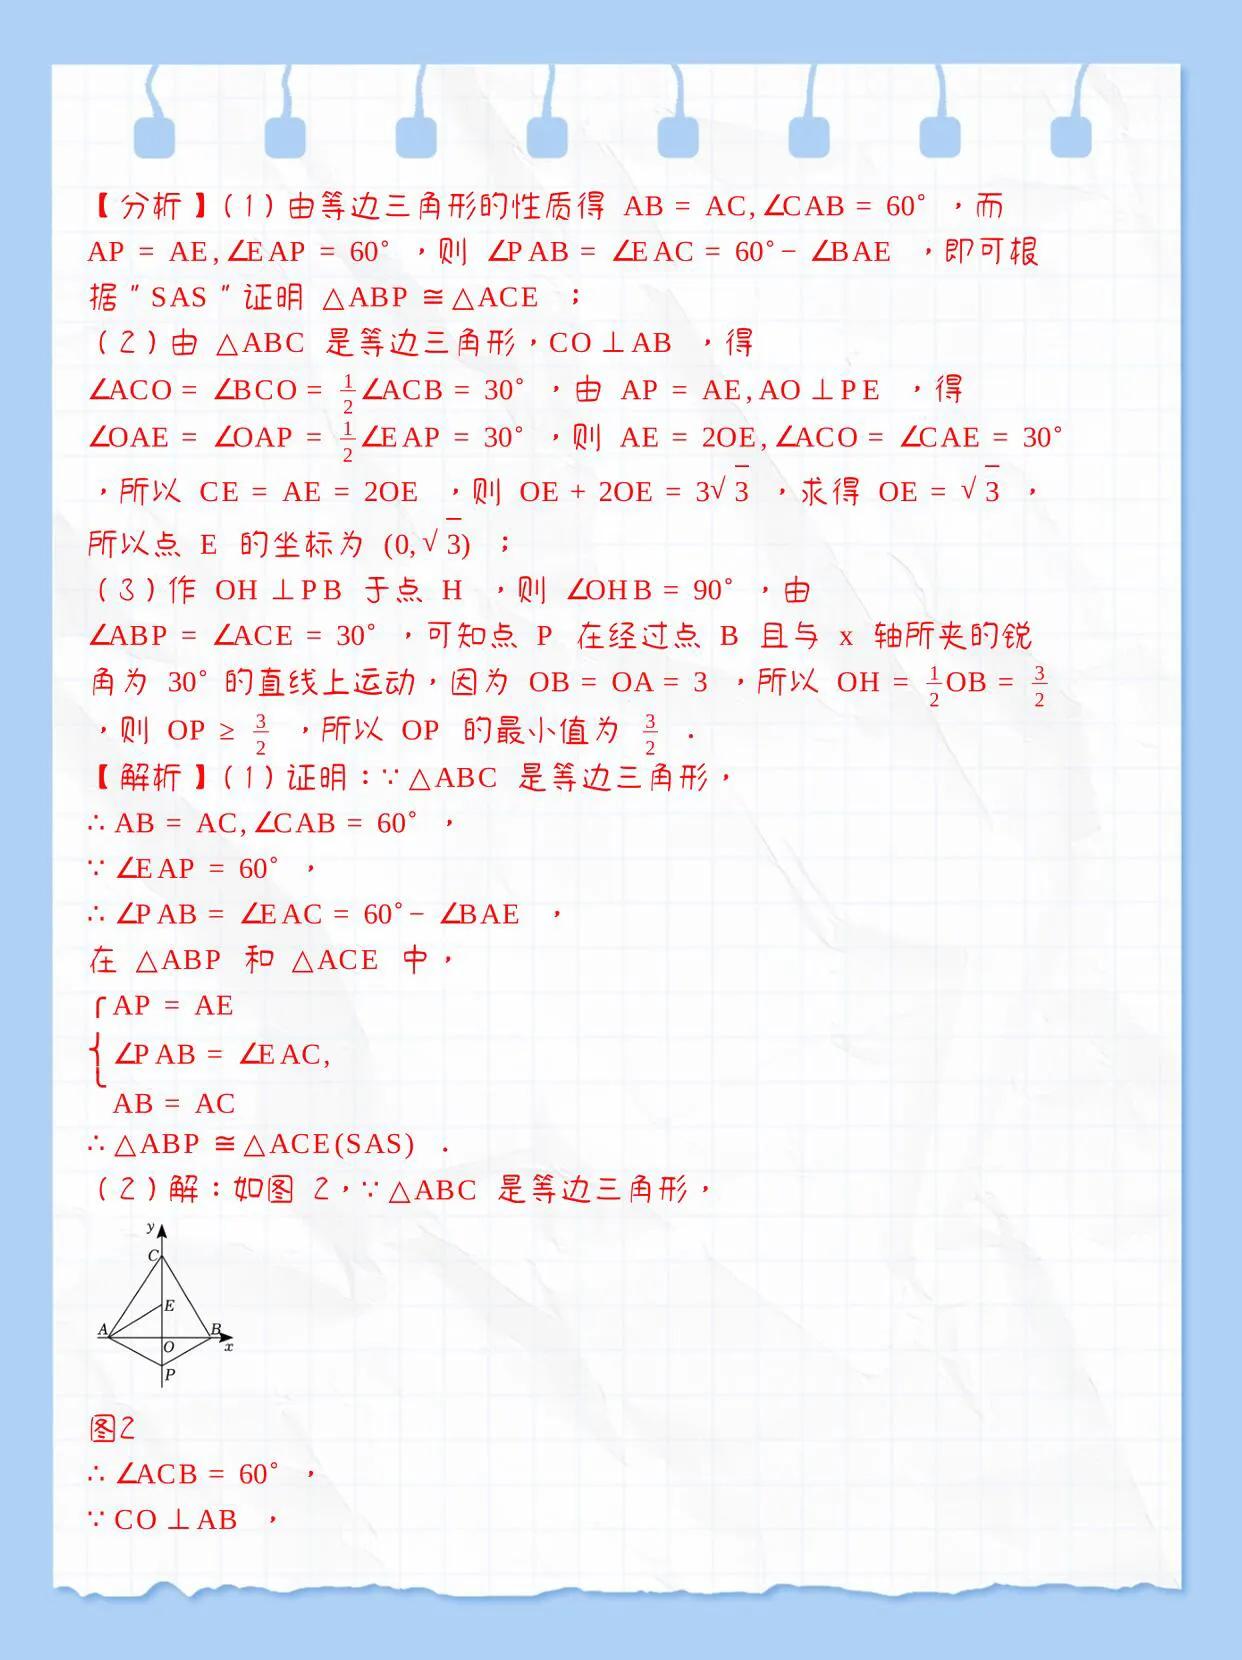 【分析】(1)由等边三角形的性质得 AB = AC,∠CAB = 60° ，而
AP = AE,∠EAP = 60° ，则 ∠PAB = ∠EAC = 60°− ∠BAE ，即可根
据"SAS"证明 △ABP ≅ △ACE ；
(2)由 △ABC 是等边三角形，CO ⊥ AB ，得
∠ACO = ∠BCO = 1/2∠ACB = 30° ，由 AP = AE,AO ⊥ PE ，得
∠OAE = ∠OAP = 1/2∠EAP = 30° ，则 AE = 2OE,∠ACO = ∠CAE = 30°
，所以 CE = AE = 2OE ，则 OE + 2OE = 3√3 ，求得 OE = √3 ，
所以点 E 的坐标为 (0,√3) ；
(3)作 OH ⊥ PB 于点 H ，则 ∠OHB = 90° ，由
∠ABP = ∠ACE = 30° ，可知点 P 在经过点 B 且与 x 轴所夹的锐
角为 30° 的直线上运动，因为 OB = OA = 3 ，所以 OH = 1/2OB = 3/2
，则 OP ≥ 3/2 ，所以 OP 的最小值为 3/2 ．
【解析】(1)证明：∵ △ABC 是等边三角形，
∴ AB = AC,∠CAB = 60° ，
∵ ∠EAP = 60° ，
∴ ∠PAB = ∠EAC = 60°− ∠BAE ，
在 △ABP 和 △ACE 中，
{ AP = AE
∠PAB = ∠EAC,
AB = AC
∴ △ABP ≅ △ACE(SAS) ．
(2)解：如图 2，∵ △ABC 是等边三角形，
y
C
E
A
B
O
x
P
图2
∴ ∠ACB = 60° ，
∵ CO ⊥ AB ，